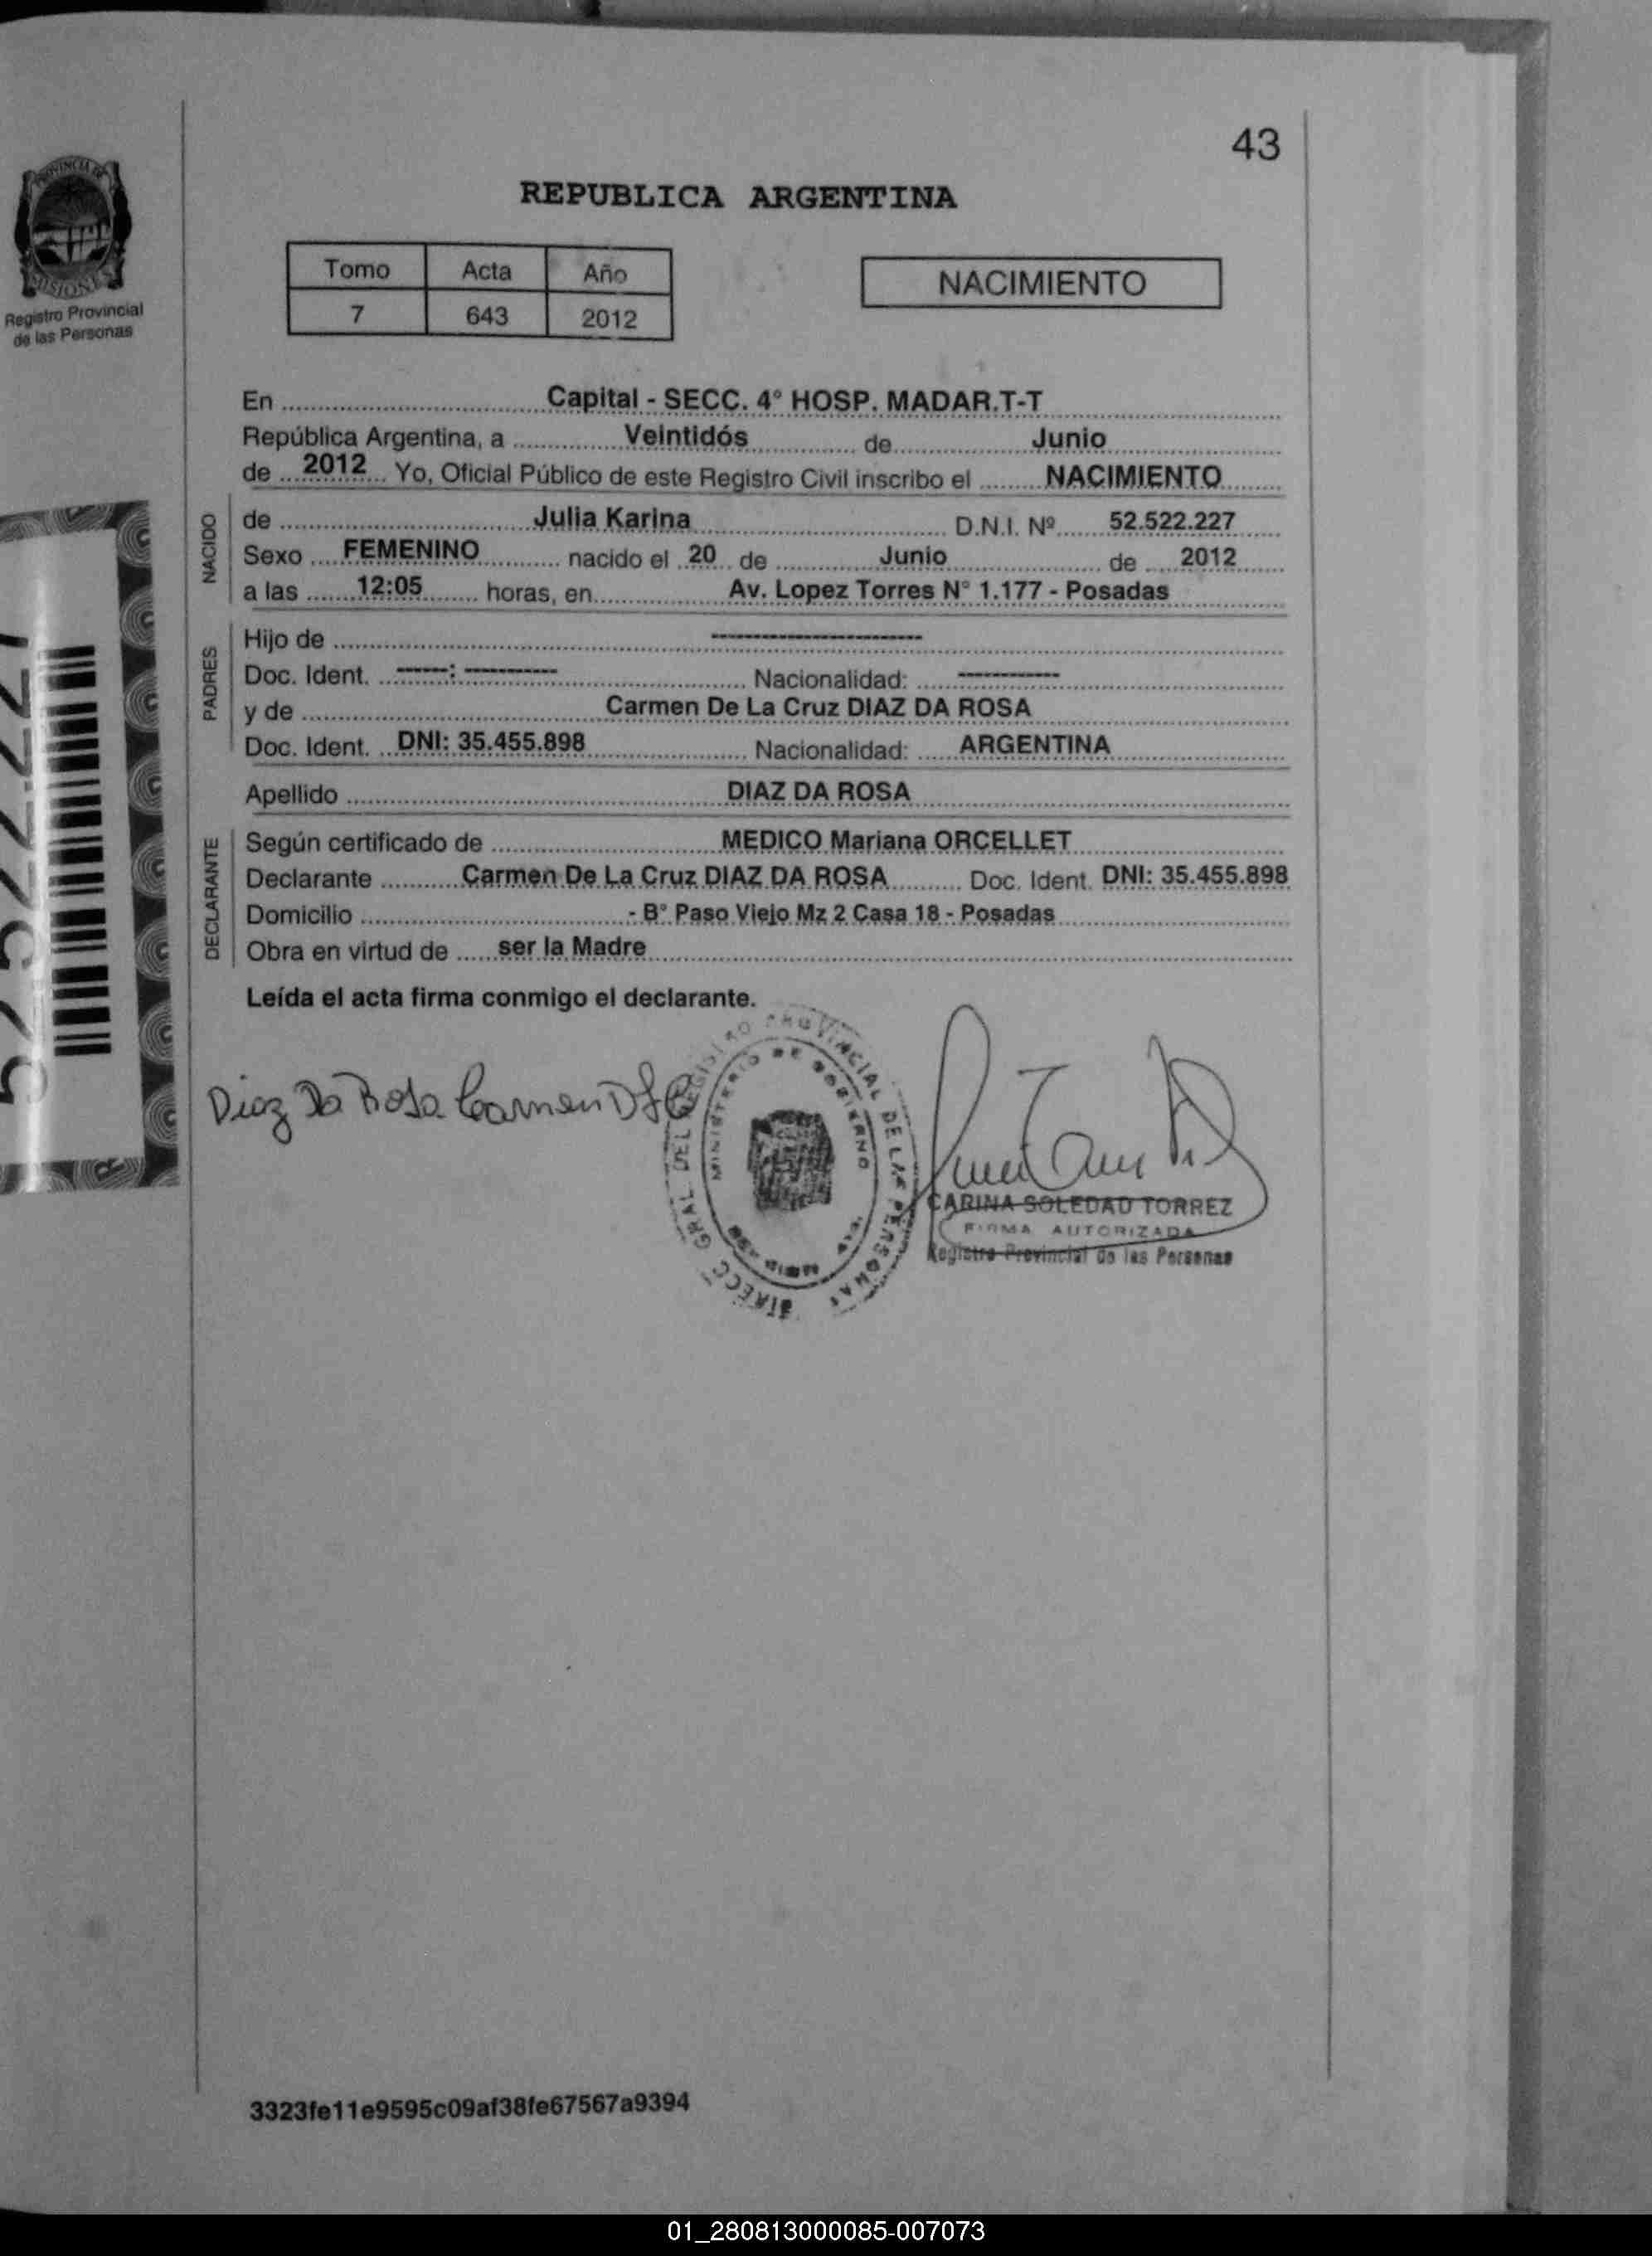 43
PROVINCIA DE
MISIONES
Registro Provincial
de las Personas
REPUBLICA ARGENTINA
Tomo Acta Año
7 643 2012
NACIMIENTO
En Capital - SECC. 4° HOSP. MADAR.T-T
República Argentina, a Veintidós de Junio
de 2012 Yo, Oficial Público de este Registro Civil inscribo el NACIMIENTO
NACIDO
de Julia Karina D.N.I. Nº 52.522.227
Sexo FEMENINO nacido el 20 de Junio de 2012
a las 12:05 horas, en Av. Lopez Torres N° 1.177 - Posadas
PADRES
Hijo de ------------------------
Doc. Ident. ------: ----------- Nacionalidad: ------------
y de Carmen De La Cruz DIAZ DA ROSA
Doc. Ident. DNI: 35.455.898 Nacionalidad: ARGENTINA
Apellido DIAZ DA ROSA
DECLARANTE
Según certificado de MEDICO Mariana ORCELLET
Declarante Carmen De La Cruz DIAZ DA ROSA Doc. Ident. DNI: 35.455.898
Domicilio - B° Paso Viejo Mz 2 Casa 18 - Posadas
Obra en virtud de ser la Madre
Leída el acta firma conmigo el declarante.
Diaz Da Rosa Carmen
DIRECC GRAL DEL REGISTRO PROVINCIAL DE LAS PERSONAS
MINISTERIO DE GOBIERNO
CARINA SOLEDAD TORREZ
FIRMA AUTORIZADA
Registro Provincial de las Personas
3323fe11e9595c09af38fe67567a9394
01_280813000085-007073